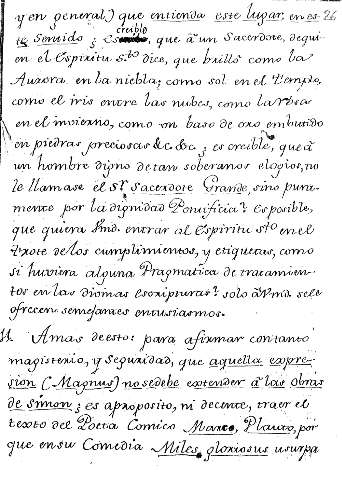 y en general) que entienda este lugar en es- 26
te Sentido; Es creible, que à un Sacerdote, de qui-
en el Espiritu S.to dice, que brillò como la
Aurora en la niebla; como sol en el Templo,
como el iris entre las nubes, como la rosa
en el invierno, como un baso de oro embutido
en piedras preciosas &c. &c. ¿ es creible, que à
un hombre digno de tan soberanos elogios, no
le llamase el S.r Sacerdote Grande, sino pura-
mente por la dignidad Pontificia? Es posible,
que quiera Vmd. entrar al Espiritu S.to en el
trote de los cumplimientos, y etiquetas, como
si huviera alguna Pragmatica de tratamien-
tos en las divinas escripturas? solo à Vmd. se le
ofrecen semejantes entusiasmos.
11. A mas de esto: para afirmar con tanto
magisterio, y Seguridad, que aquella expre-
sion (Magnus) no se debe extender à las obras
de Simon; es aproposito, ni decente, traer el
texto del Poeta Comico Marco, Plauto, por
que en su Comedia Miles gloriosus usurpa